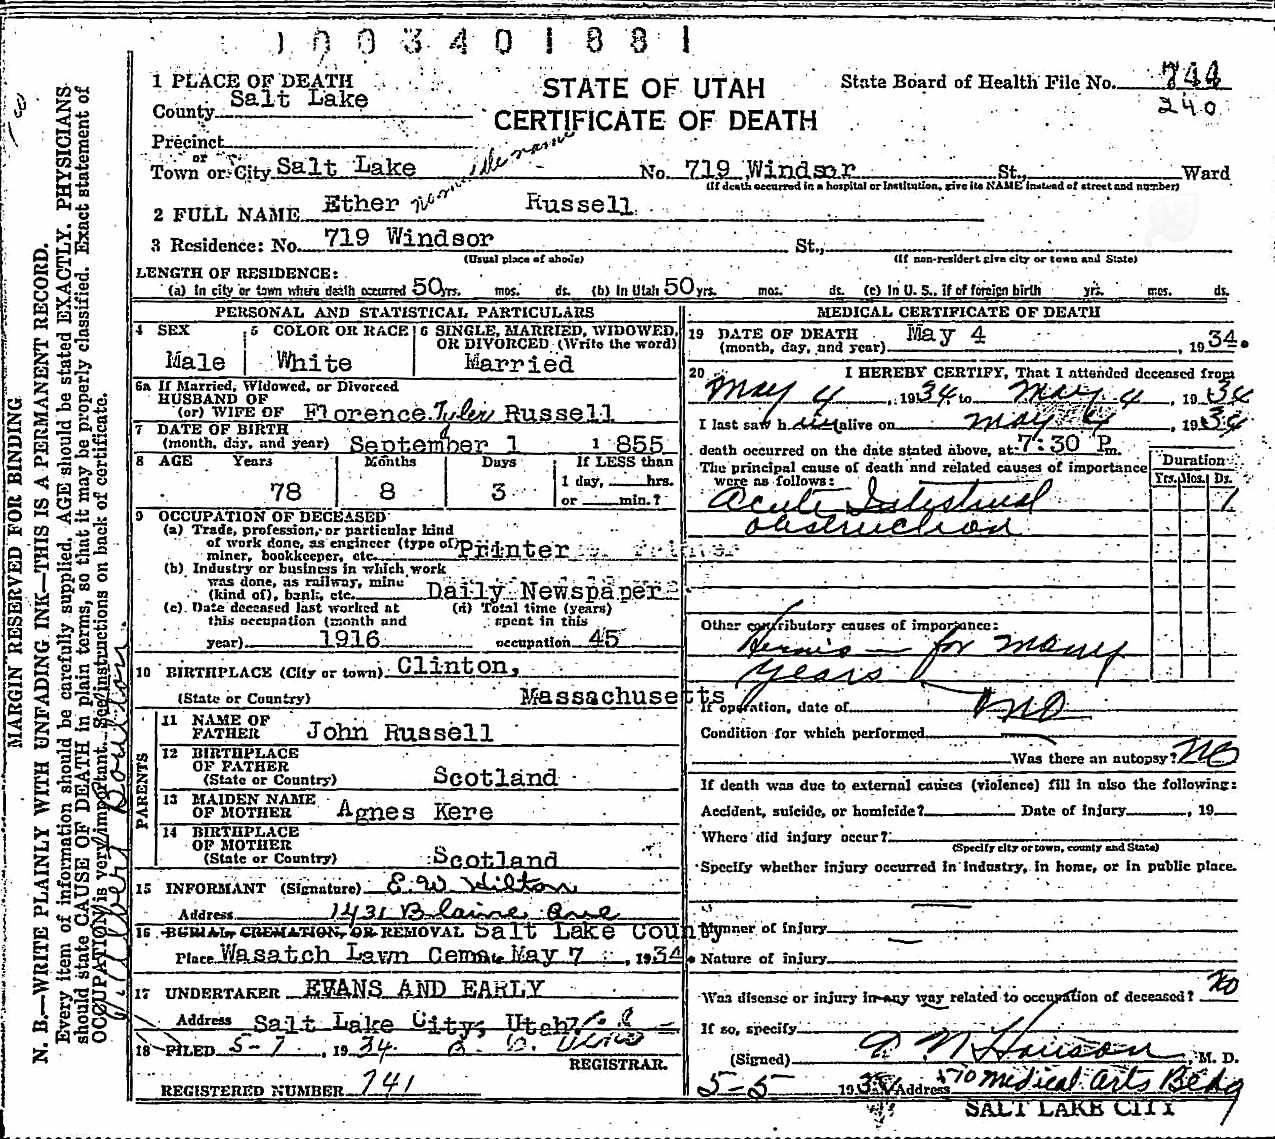 1 0 0 3 4 0 1 8 8 1
STATE OF UTAH
CERTIFICATE OF DEATH
State Board of Health File No. 744
240
1 PLACE OF DEATH
County Salt Lake
Precinct
or
Town or City Salt Lake No. 719 Windsor St., Ward
(If death occurred in a hospital or institution, give its NAME instead of street and number)
2 FULL NAME Ether Russell
3 Residence: No. 719 Windsor St.,
(Usual place of abode) (If non-resident give city or town and State)
LENGTH OF RESIDENCE:
(a) In city or town where death occurred 50 yrs. mos. ds. (b) In Utah 50 yrs. mos. ds. (c) In U. S., if of foreign birth yrs. mos. ds.
PERSONAL AND STATISTICAL PARTICULARS
4 SEX
Male
5 COLOR OR RACE
White
6 SINGLE, MARRIED, WIDOWED,
OR DIVORCED (Write the word)
Married
6a If Married, Widowed, or Divorced
HUSBAND OF
(or) WIFE OF Florence Tyler Russell
7 DATE OF BIRTH
(month, day, and year) September 1 1 855
8 AGE Years Months Days If LESS than
1 day, hrs.
78 8 3 or min.?
9 OCCUPATION OF DECEASED
(a) Trade, profession, or particular kind
of work done, as engineer (type of)
miner, bookkeeper, etc. Printer
(b) Industry or business in which work
was done, as railway, mine
(kind of), bank, etc. Daily Newspaper
(c) Date deceased last worked at
this occupation (month and
year) 1916
(d) Total time (years)
spent in this
occupation 45
10 BIRTHPLACE (City or town) Clinton,
(State or Country) Massachusetts
PARENTS
11 NAME OF
FATHER John Russell
12 BIRTHPLACE
OF FATHER
(State or Country) Scotland
13 MAIDEN NAME
OF MOTHER Agnes Kere
14 BIRTHPLACE
OF MOTHER
(State or Country) Scotland
15 INFORMANT (Signature) E. W. Hilton
Address 1431 Blaine Ave
16 BURIAL, CREMATION, OR REMOVAL Salt Lake County
Place Wasatch Lawn Cem. May 7, 1934.
17 UNDERTAKER EVANS AND EARLY
Address Salt Lake City, Utah.
18 FILED 5-7, 1934
REGISTRAR.
REGISTERED NUMBER 741
MEDICAL CERTIFICATE OF DEATH
19 DATE OF DEATH May 4
(month, day, and year) , 1934.
20 I HEREBY CERTIFY, That I attended deceased from
May 4, 1934, to May 4, 1934
I last saw him alive on May 4, 1934
death occurred on the date stated above, at 7:30 P m.
The principal cause of death and related causes of importance
were as follows:
Duration
Yrs. Mos. Ds.
Acute Intestinal 1
obstruction
Other contributory causes of importance:
Hernia - for many
years
If operation, date of no
Condition for which performed
Was there an autopsy? No
If death was due to external causes (violence) fill in also the following:
Accident, suicide, or homicide? Date of injury , 19
Where did injury occur?
(Specify city or town, county and State)
Specify whether injury occurred in industry, in home, or in public place.
Manner of injury
Nature of injury
Was disease or injury in any way related to occupation of deceased? No
If so, specify
(Signed) M. D.
5-5 1934 Address 570 Medical Arts Bldg
SALT LAKE CITY
MARGIN RESERVED FOR BINDING
N. B.—WRITE PLAINLY WITH UNFADING INK—THIS IS A PERMANENT RECORD.
Every item of information should be carefully supplied. AGE should be stated EXACTLY. PHYSICIANS
should state CAUSE OF DEATH in plain terms, so that it may be properly classified. Exact statement of
OCCUPATION is very important. See instructions on back of certificate.